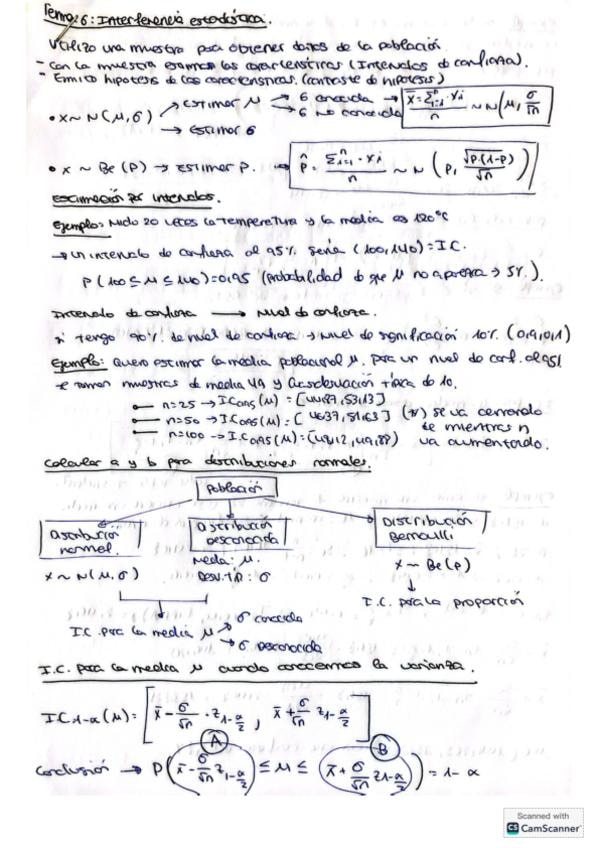 Tema 6: Interferencia estadística.
Utilizo una muestra para obtener datos de la población.
- Con la muestra examino las características (Intervalos de confianza).
- Emito hipótesis de las características. (contraste de hipótesis)
• x ~ N(μ, σ) → estimar μ → σ conocida → x̄ = Σᵢ₌₁ⁿ · xᵢ / n ~ N(μ, σ/√n)
→ σ no conocida
→ Estimar σ
• x ~ Be(p) → estimar p. → p̂ = Σᵢ₌₁ⁿ · xᵢ / n ~ N(p, √p·(1-p) / √n)
Estimación por intervalos.
Ejemplo: Mido 20 veces la temperatura y la media es 120°C
→ un intervalo de confianza al 95% sería (100,140) = I.C.
P(100 ≤ μ ≤ 140) = 0,95 (probabilidad de que μ no aparezca → 5%).
Intervalo de confianza → Nivel de confianza.
si tengo 90% de nivel de confianza → nivel de significación 10%. (0,9,0,1)
Ejemplo: Quiero estimar la media poblacional μ. para un nivel de conf. al 95%
se toman muestras de media 49 y desviación típica de 10.
n=25 → IC₀,₉₅(μ) =
n=50 → IC₀,₉₅(μ) =
n=100 → IC₀,₉₅(μ) =
(*) se va cerrando
mientras n
va aumentando.
Calcular a y b para distribuciones normales.
Población
Distribución normal.
Distribución Desconocida
Distribución Bernoulli
x ~ N(μ, σ)
Media: μ
Desv. típ: σ
x ~ Be(p)
I.C. para la proporción
I.C. para la media μ → σ conocida
→ σ desconocida
I.C. para la media μ cuando conocemos la varianza.
IC₁₋α(μ) = [x̄ - σ/√n · z₁₋α/₂, x̄ + σ/√n z₁₋α/₂]
A B
Conclusión → P(x̄ - σ/√n z₁₋α/₂ ≤ μ ≤ x̄ + σ/√n z₁₋α/₂) = 1 - α
Scanned with
CS CamScanner